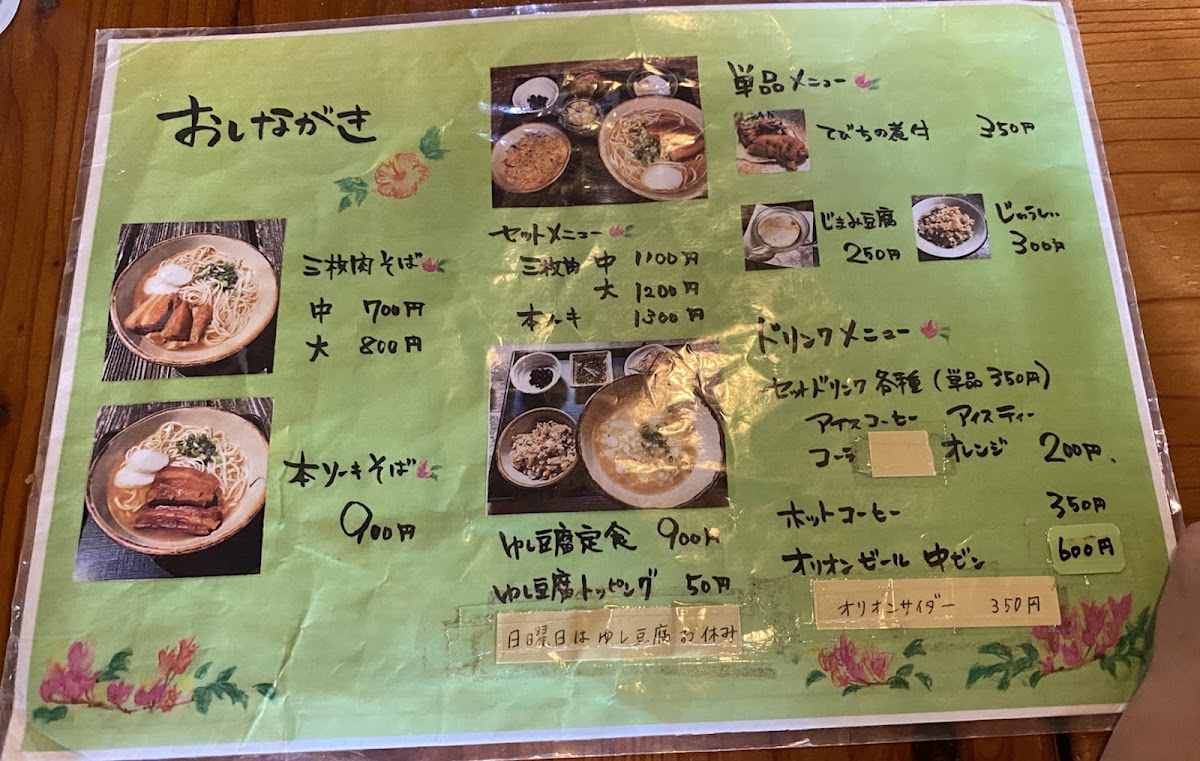 おしながき
三枚肉そば
中 700円
大 800円
本ソーキそば
900円
セットメニュー
三枚肉 中 1100円
大 1200円
本ソーキ 1300円
ゆし豆腐定食 900円
ゆし豆腐トッピング 50円
日曜日はゆし豆腐お休み
単品メニュー
てびちの煮付 350円
じまみ豆腐
250円
じゅうしぃ
300円
ドリンクメニュー
セットドリンク各種(単品350円)
アイスコーヒー アイスティー
コーラ オレンジ 200円、
ホットコーヒー 350円
オリオンビール 中ビン 600円
オリオンサイダー 350円